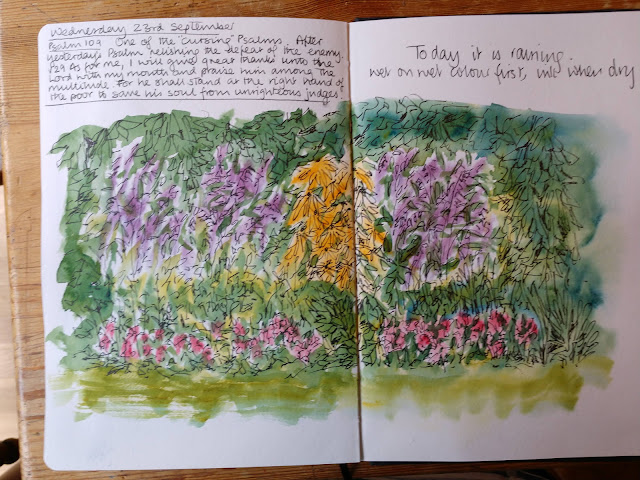 Wednesday 23rd September
Psalm 109 One of the "cursing" Psalms. After
yesterday's Psalm relishing the defeat of the enemy.
v29 As for me, I will give great thanks unto the
Lord with my mouth and praise him among the
multitude. For he shall stand at the right hand of
the poor to save his soul from unrighteous judges
Today it is raining.
wet on wet colour first, ink when dry